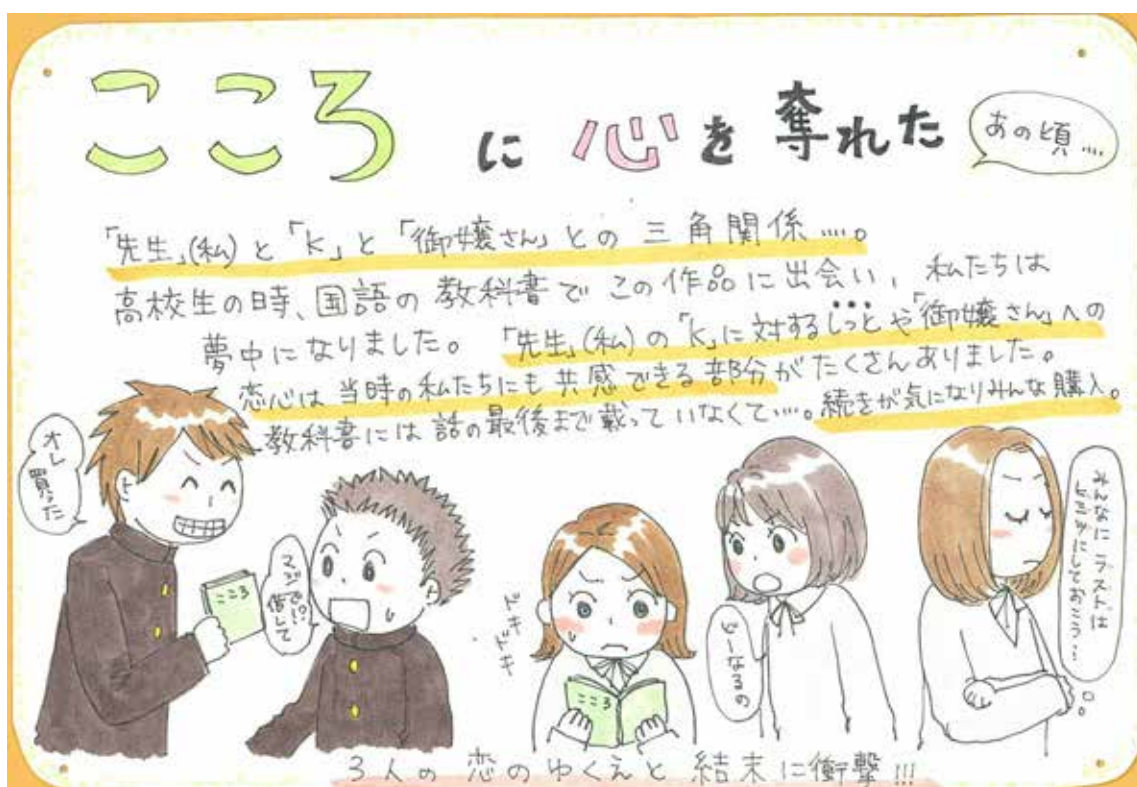 こころ に 心 を 奪れた
あの頃....
「先生」(私)と「K」と「御嬢さん」との三角関係....。
高校生の時、国語の教科書でこの作品に出会い、私たちは
夢中になりました。「先生」(私)の「K」に対するしっとや「御嬢さん」への
恋心は当時の私たちにも共感できる部分がたくさんありました。
教科書には話の最後まで載っていなくて....。続きが気になりみんな購入。
オレ
買った
こころ
マジで!?
借して
ドキ
ドキ
こころ
どーなるの
みんなにラストは
ヒミツにしておこう...
3人の恋のゆくえと結末に衝撃!!!